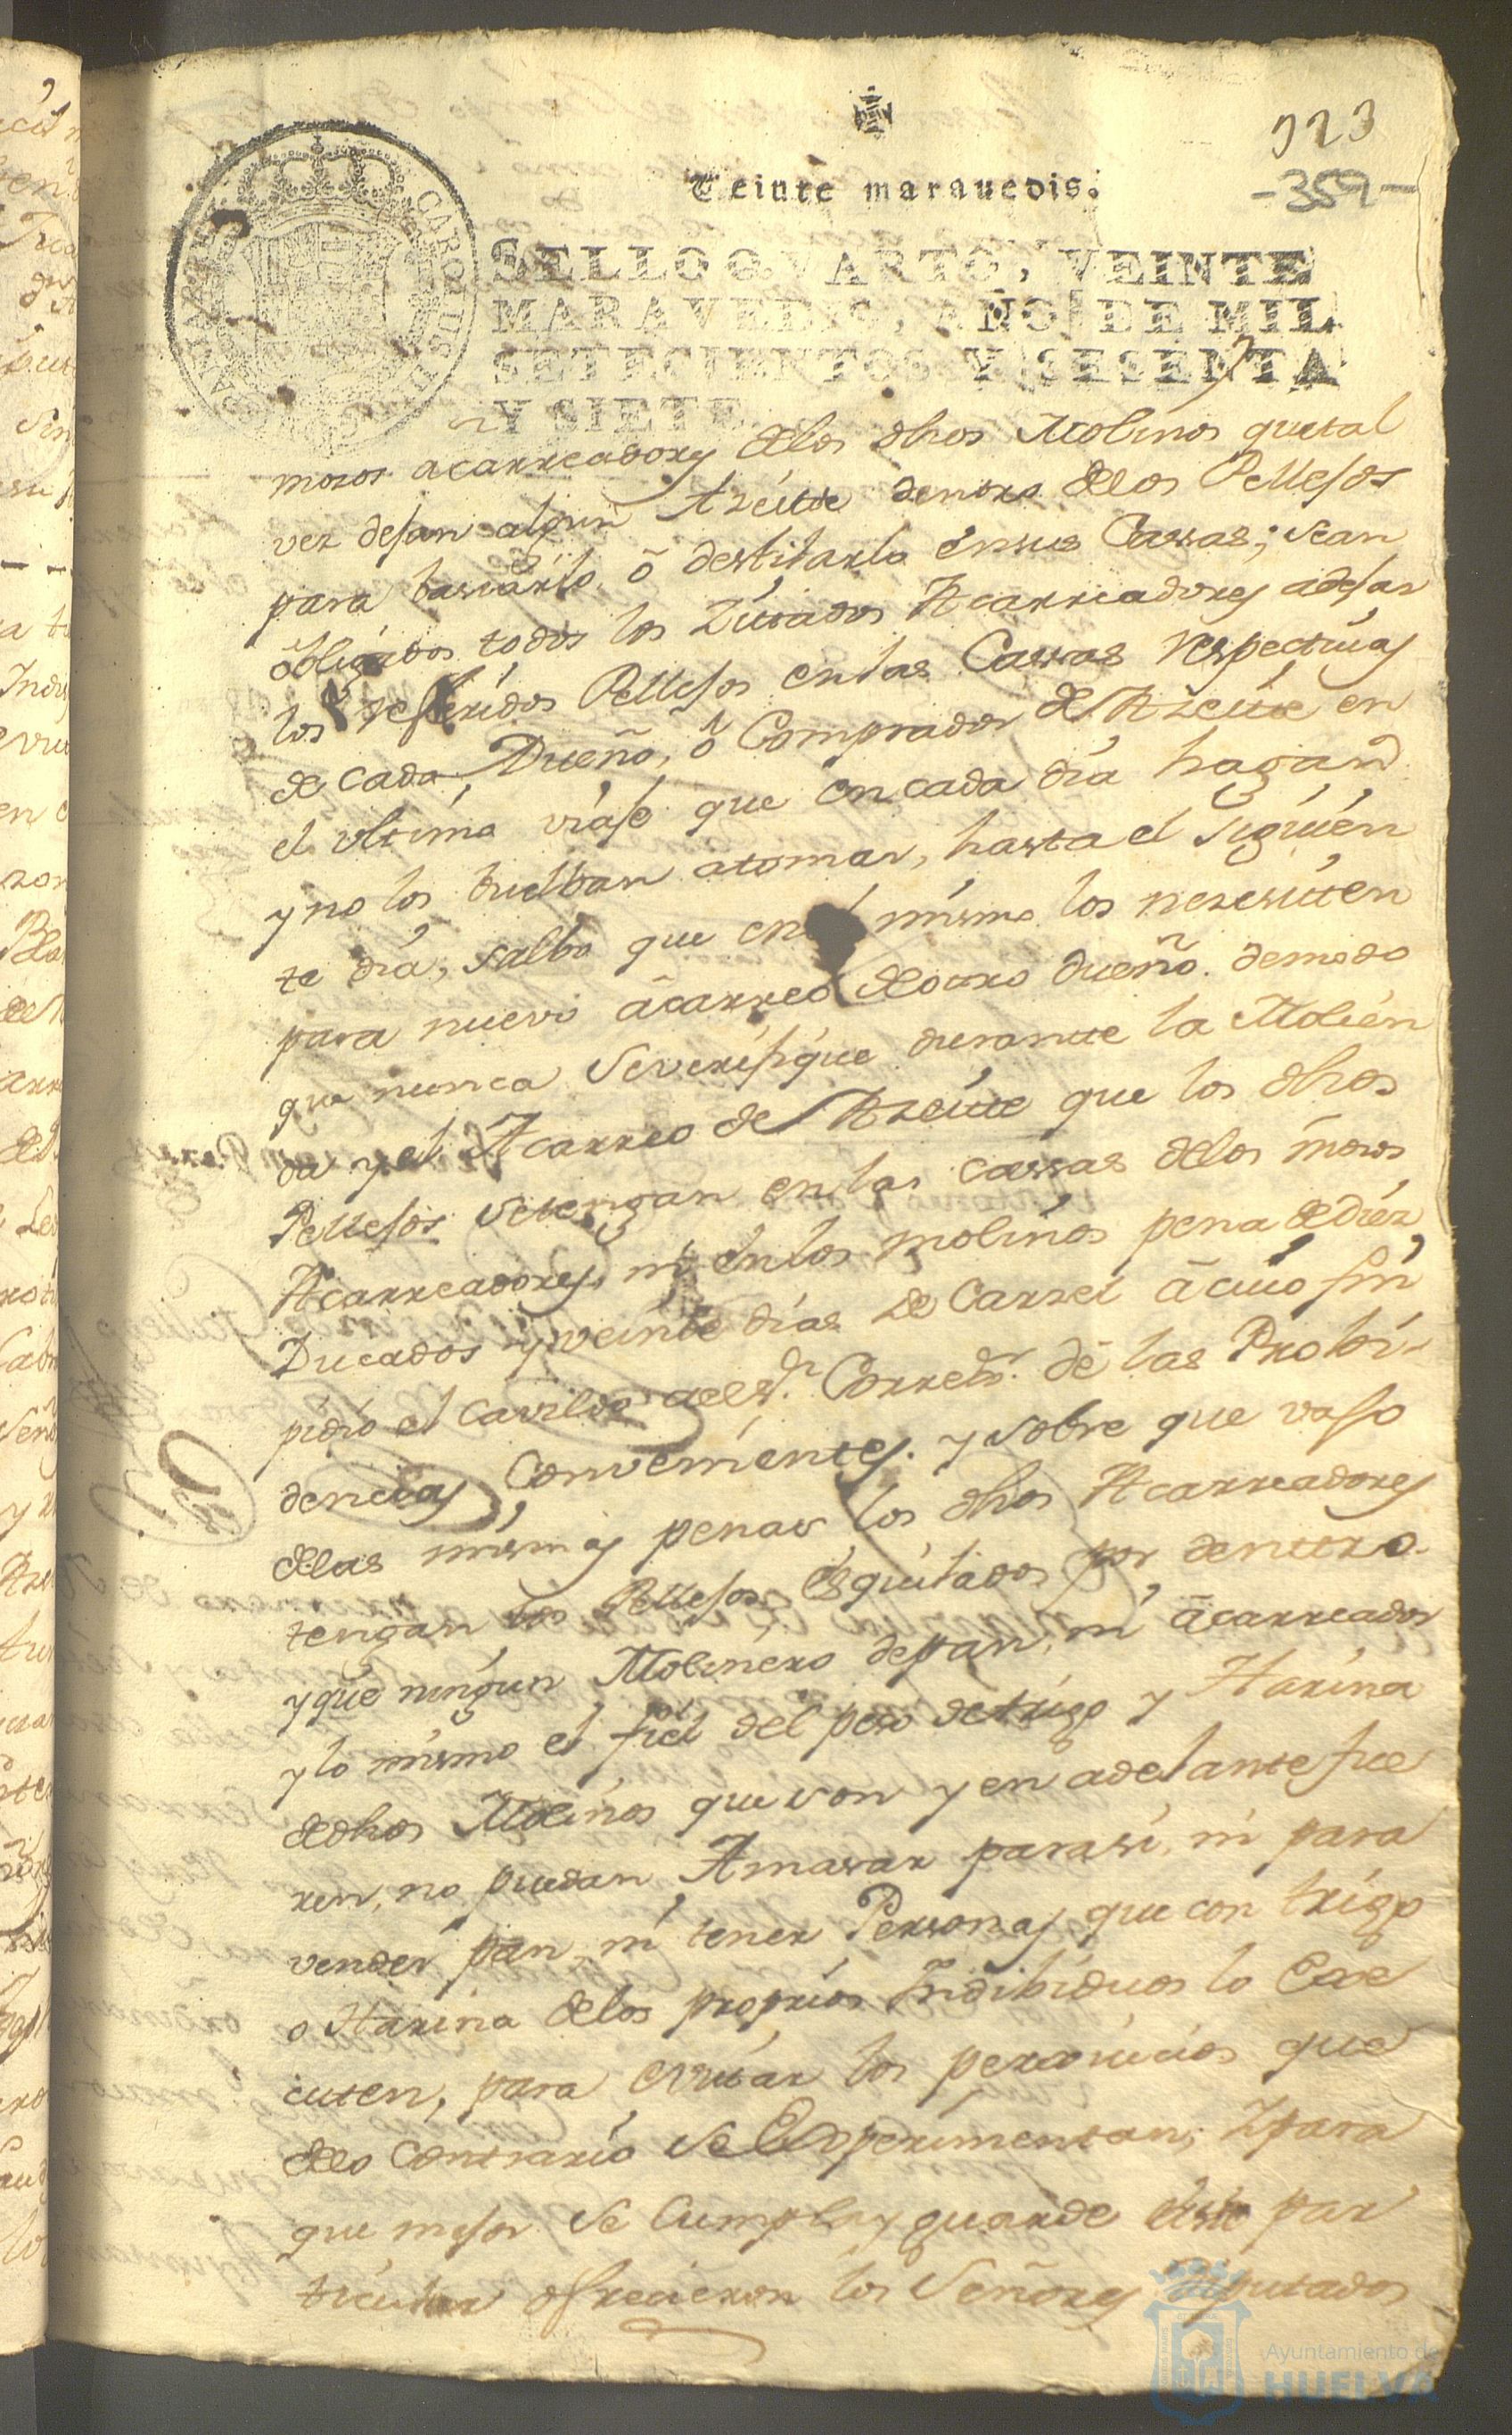 323
-359-
Veinte marauedis.
SELLO QVARTO, VEINTE
MARAVEDIS, AÑO DE MIL
SETECIENTOS Y SESENTA
Y SIETE.
mosos acarreadores delos dhos Molinos que tal
vez dejan algun Azeite dentro delos Pellejos
para basiarlo, ó destilarlo ensus Cassas; sean
obligados todos los Zitados Acarreadores adejar
los referidos Pellejos enlas Cassas respectivas
de cada Dueño, ó Comprador de Azeite en
el vltimo viaje que encada dia hagan
y no los buelban atomar, hasta el siguien
te dia, salbo que enel mismo los nezesiten
para nuevo ácarreo deotro dueño. demodo
que nunca severifique durante la Molien
da y el Acarreo de Azeite que los dhos
Pellejos setengan enlas cassas delos mosos
Acarreadores, ni enlos molinos pena de diez
Ducados y veinte dias de Carzel ácuio fin
pidio el Cavildo aels.r Corred.r dé las Probi-
dencias Convenientes. y sobre que vajo
delas mismas penas los dhos Acarreadores
tengan los Pellejos esquilados por dentro.
y que ningun Molinero depan, ni ácarreador
y lo mismo el fiel del peso detrigo y Harina
dedhos Molinos que son y en adelante fue
ren, no puedan Amasar parasi, ni para
vender pan, ni tener Personas que con trigo
o Harina delos proprios Indibiduos lo Exe
cuten, para evitar los perxuicios que
delo contrario se Experimentan; Ypara
que mejor se Cumpla y guarde este par
ticular ofrecieron los Señores Diputados
Ayuntamiento de
HUELVA